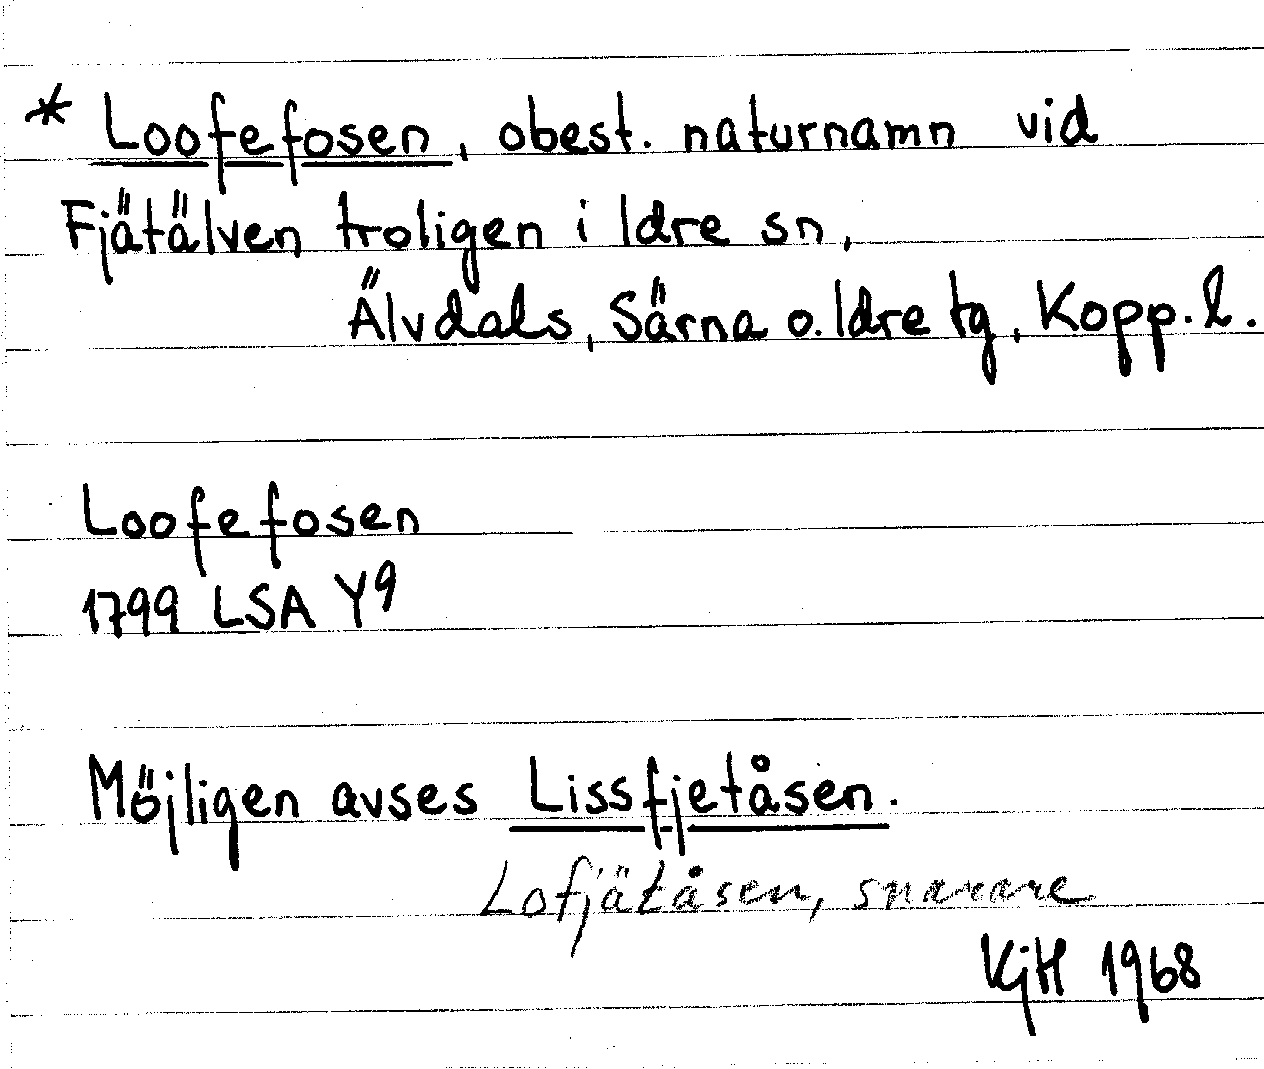 * Loofefosen, obest. naturnamn vid
Fjätälven troligen i Idre sn,
Älvdals, Särna o. Idre tg, Kopp. l.
Loofefosen
1799 LSA Y9
Möjligen avses Lissfjetåsen.
Lofjätåsen, snarare
KjH 1968